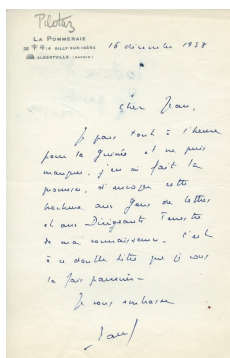 Pilotaz
LA POMMERAIE
GILLY-SUR-ISÈRE
ALBERTVILLE (SAVOIE)
16 décembre 1958
Cher Jean,
Je pars tout à l'heure
pour la Guinée et ne puis
manquer, j'en ai fait la
promesse, d'envoyer cette
brochure aux Gens de lettres
et aux Dirigeants
de ma connaissance. C'est
à ce double titre que je vous
la fais parvenir -
Je vous embrasse
Paul